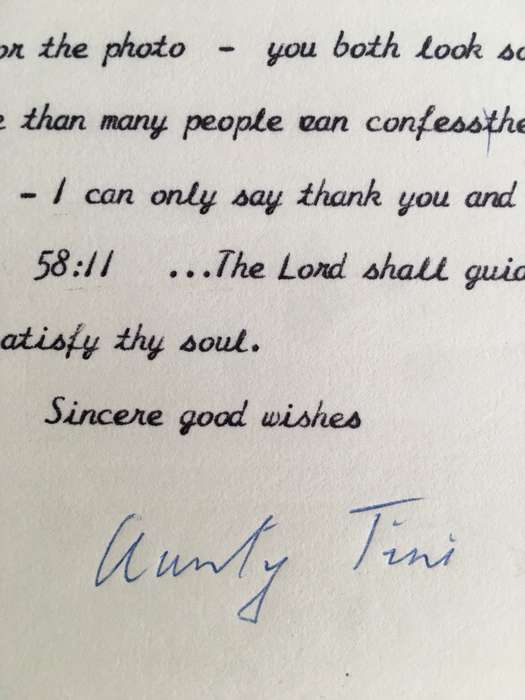 or the photo - you both look so
e than many people can confess the
- I can only say thank you and
58:11 ...The Lord shall guid
atisfy thy soul.
Sincere good wishes
Aunty Tini